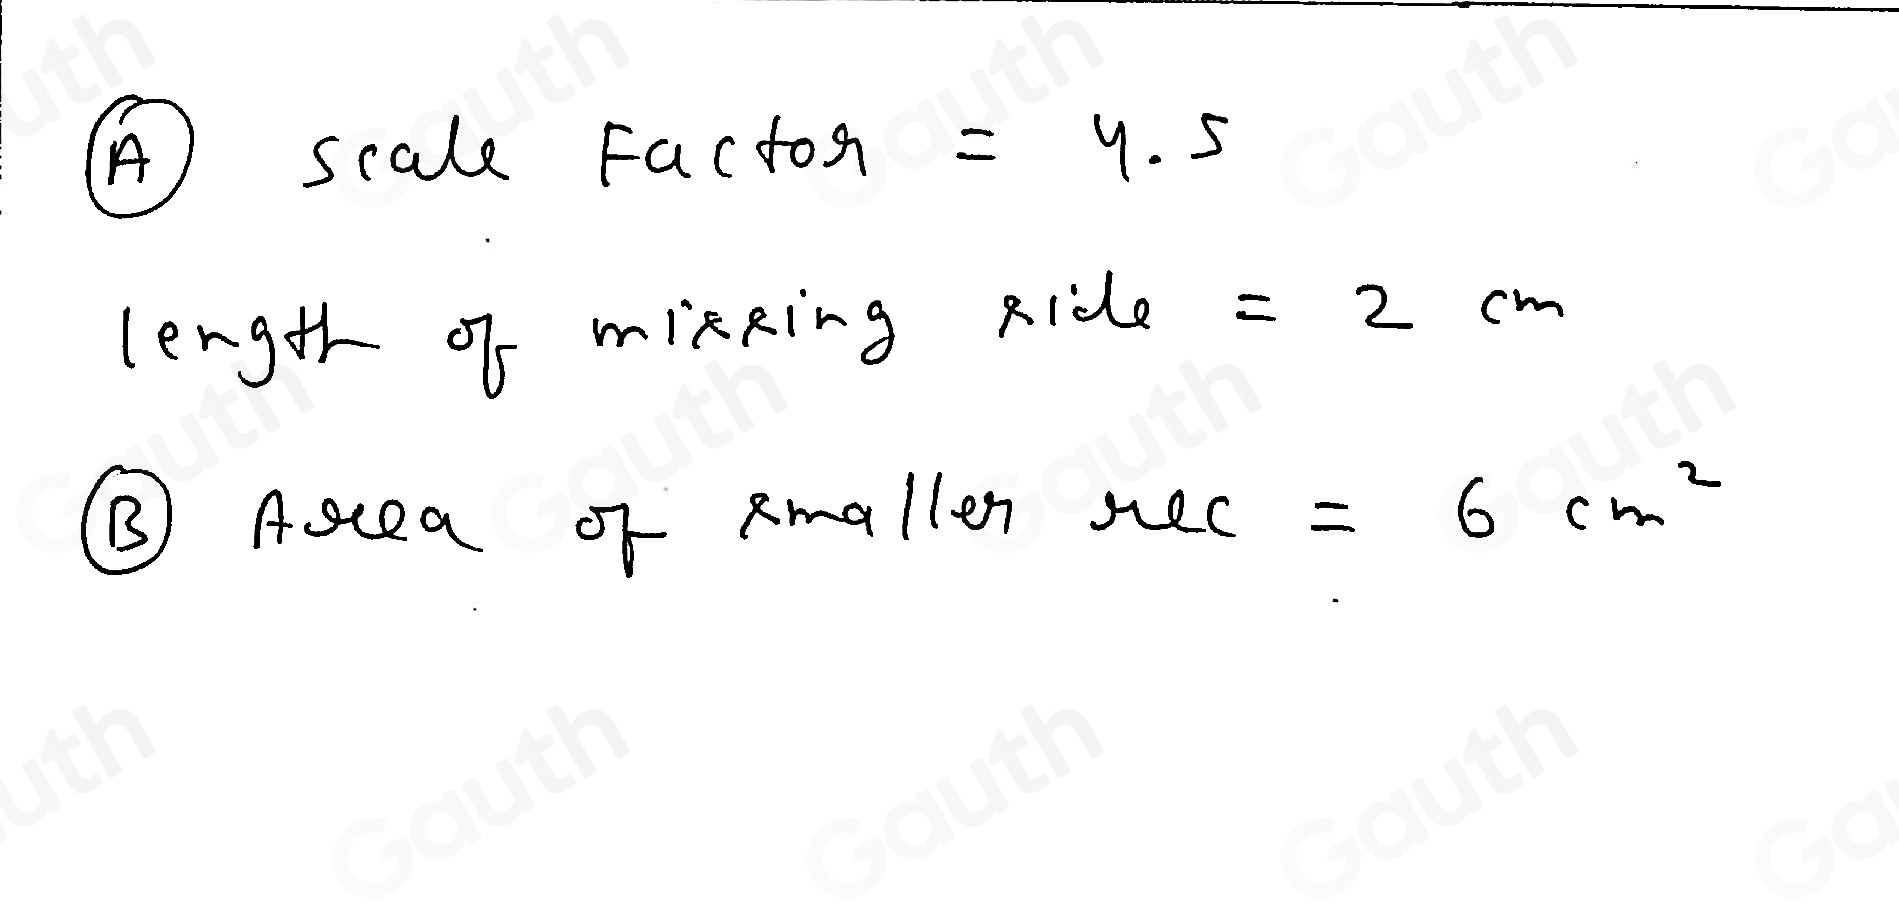 A scale Factor = 4.5
length of missing side = 2 cm
B Area of smaller rec = 6 cm²